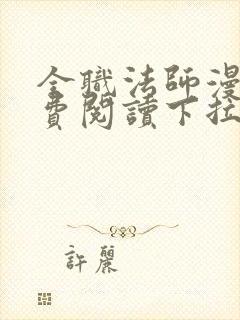 全職法師漫
費閱讀下拉
許麗